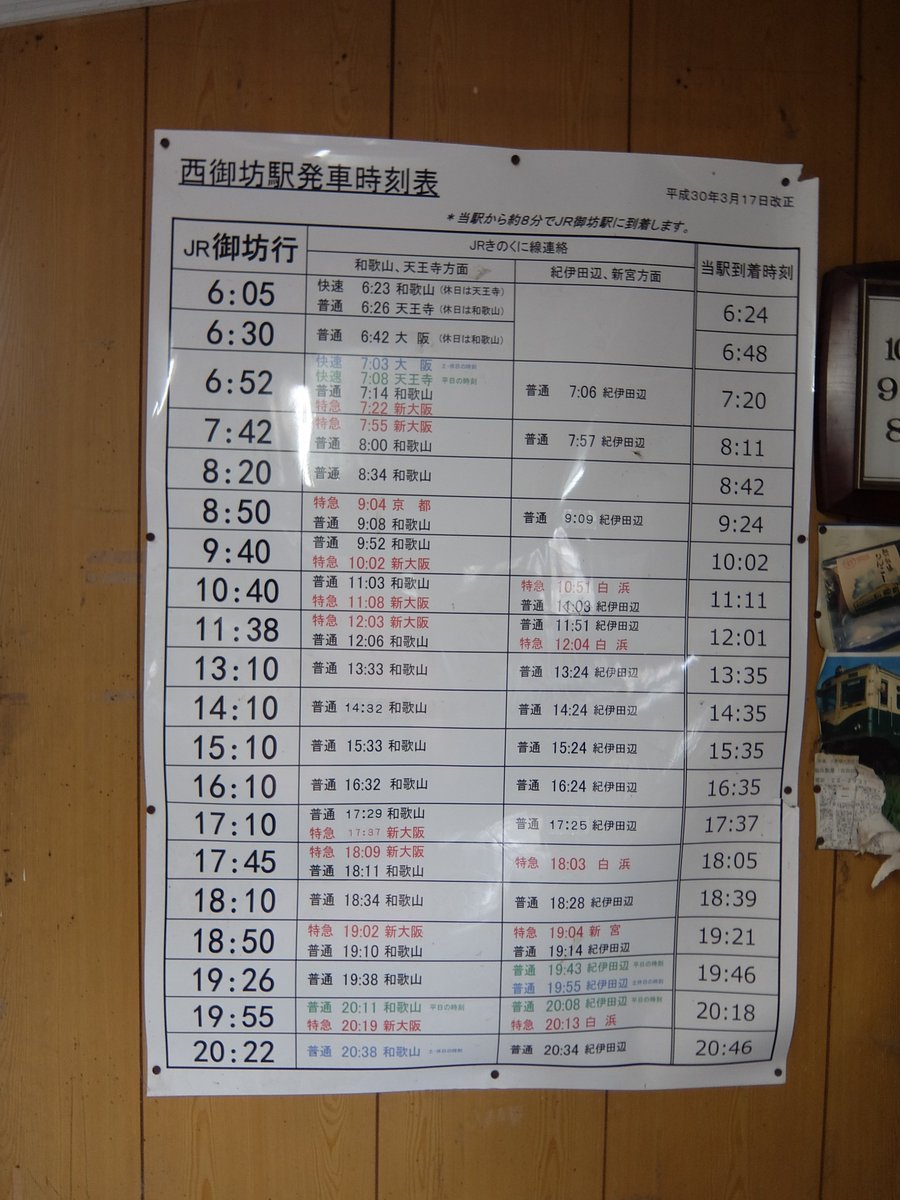 西御坊駅発車時刻表
平成30年3月17日改正
＊当駅から約8分でJR御坊駅に到着します。
JR御坊行 JRきのくに線連絡 当駅到着時刻
和歌山、天王寺方面 紀伊田辺、新宮方面
6:05 快速 6:23 和歌山（休日は天王寺） 6:24
普通 6:26 天王寺（休日は和歌山）
6:30 普通 6:42 大 阪（休日は和歌山） 6:48
6:52 快速 7:03 大 阪 土・休日の時刻 普通 7:06 紀伊田辺 7:20
快速 7:08 天王寺 平日の時刻
普通 7:14 和歌山
特急 7:22 新大阪
7:42 特急 7:55 新大阪 普通 7:57 紀伊田辺 8:11
普通 8:00 和歌山
8:20 普通 8:34 和歌山 8:42
8:50 特急 9:04 京 都 普通 9:09 紀伊田辺 9:24
普通 9:08 和歌山
9:40 普通 9:52 和歌山 10:02
特急 10:02 新大阪
10:40 普通 11:03 和歌山 特急 10:51 白 浜 11:11
特急 11:08 新大阪 普通 11:03 紀伊田辺
11:38 特急 12:03 新大阪 普通 11:51 紀伊田辺 12:01
普通 12:06 和歌山 特急 12:04 白 浜
13:10 普通 13:33 和歌山 普通 13:24 紀伊田辺 13:35
14:10 普通 14:32 和歌山 普通 14:24 紀伊田辺 14:35
15:10 普通 15:33 和歌山 普通 15:24 紀伊田辺 15:35
16:10 普通 16:32 和歌山 普通 16:24 紀伊田辺 16:35
17:10 普通 17:29 和歌山 普通 17:25 紀伊田辺 17:37
特急 17:37 新大阪
17:45 特急 18:09 新大阪 特急 18:03 白 浜 18:05
普通 18:11 和歌山
18:10 普通 18:34 和歌山 普通 18:28 紀伊田辺 18:39
18:50 特急 19:02 新大阪 特急 19:04 新 宮 19:21
普通 19:10 和歌山 普通 19:14 紀伊田辺
19:26 普通 19:38 和歌山 普通 19:43 紀伊田辺 平日の時刻 19:46
普通 19:55 紀伊田辺 土・休日の時刻
19:55 普通 20:11 和歌山 平日の時刻 普通 20:08 紀伊田辺 平日の時刻 20:18
特急 20:19 新大阪 特急 20:13 白 浜
20:22 普通 20:38 和歌山 土・休日の時刻 普通 20:34 紀伊田辺 20:46
10
9
8